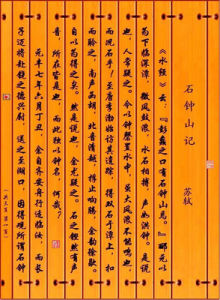 石钟山记
苏轼
《水经》云：『彭蠡之口有石钟山焉。』郦元以
为下临深潭，微风鼓浪，水石相搏，声如洪钟。是说
也，人常疑之。今以钟磬置水中，虽大风浪不能鸣也，
而况石乎！至唐李渤始访其遗踪，得双石于潭上，扣
而聆之，南声函胡，北音清越，桴止响腾，余韵徐歇。
自以为得之矣。然是说也，余尤疑之。石之铿然有声
者，所在皆是也，而此独以钟名，何哉？
元丰七年六月丁丑，余自齐安舟行适临汝，而长
子迈将赴饶之德兴尉，送之至湖口，因得观所谓石钟